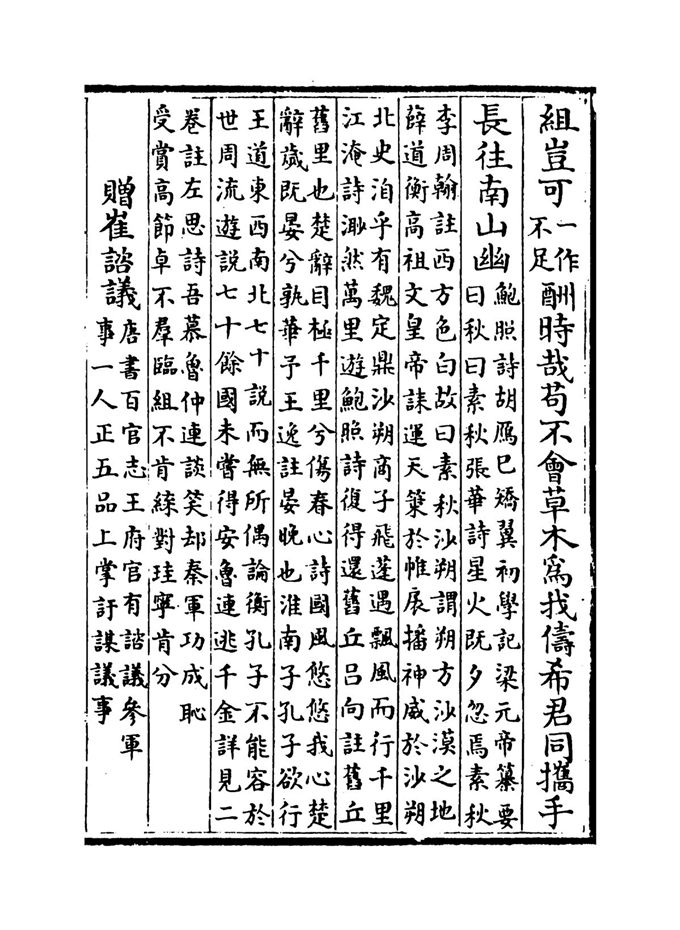 組豈可一作不足酬時哉苟不會草木為我儔希君同攜手
長往南山幽鮑照詩胡鴈已矯翼初學記梁元帝纂要
曰秋曰素秋張華詩星火既夕忽焉素秋
李周翰註西方色白故曰素秋沙朔謂朔方沙漠之地
薛道衡高祖文皇帝誄運天䇿於帷扆播神威於沙朔
北史洎乎有魏定鼎沙朔商子飛蓬遇飄風而行千里
江淹詩渺然萬里遊鮑照詩復得還舊丘呂向註舊丘
舊里也楚辭目極千里兮傷春心詩國風悠悠我心楚
辭歲既晏兮孰華予王逸註晏晚也淮南子孔子欲行
王道東西南北七十説而無所偶論衡孔子不能容於
世周流遊説七十餘國未嘗得安魯連逃千金詳見二
卷註左思詩吾慕魯仲連談笑却秦軍功成恥
受賞高節卓不羣臨組不肯緤對珪寧肯分
贈崔諮議唐書百官志王府官有諮議參軍
事一人正五品上掌訏謀議事